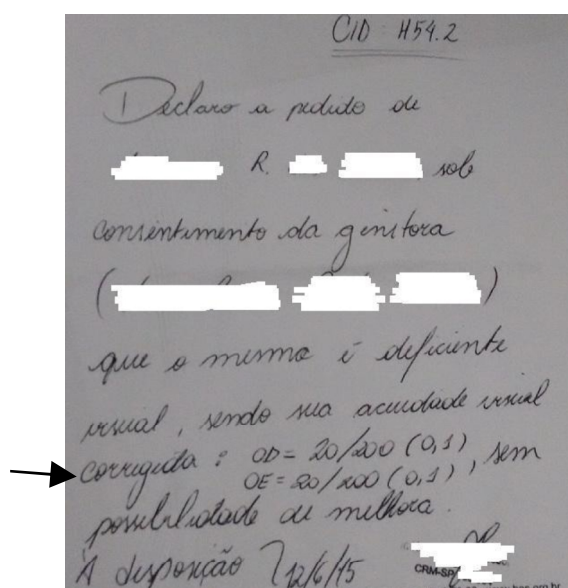 CID H54.2
Declaro a pedido de
R. sob
consentimento da genitora
( )
que o mesmo é deficiente
visual, sendo sua acuidade visual
corrigida : OD = 20/200 (0,1)
OE = 20/200 (0,1) , sem
possibilidade de melhora.
À disposição 12/6/15
CRM-SP